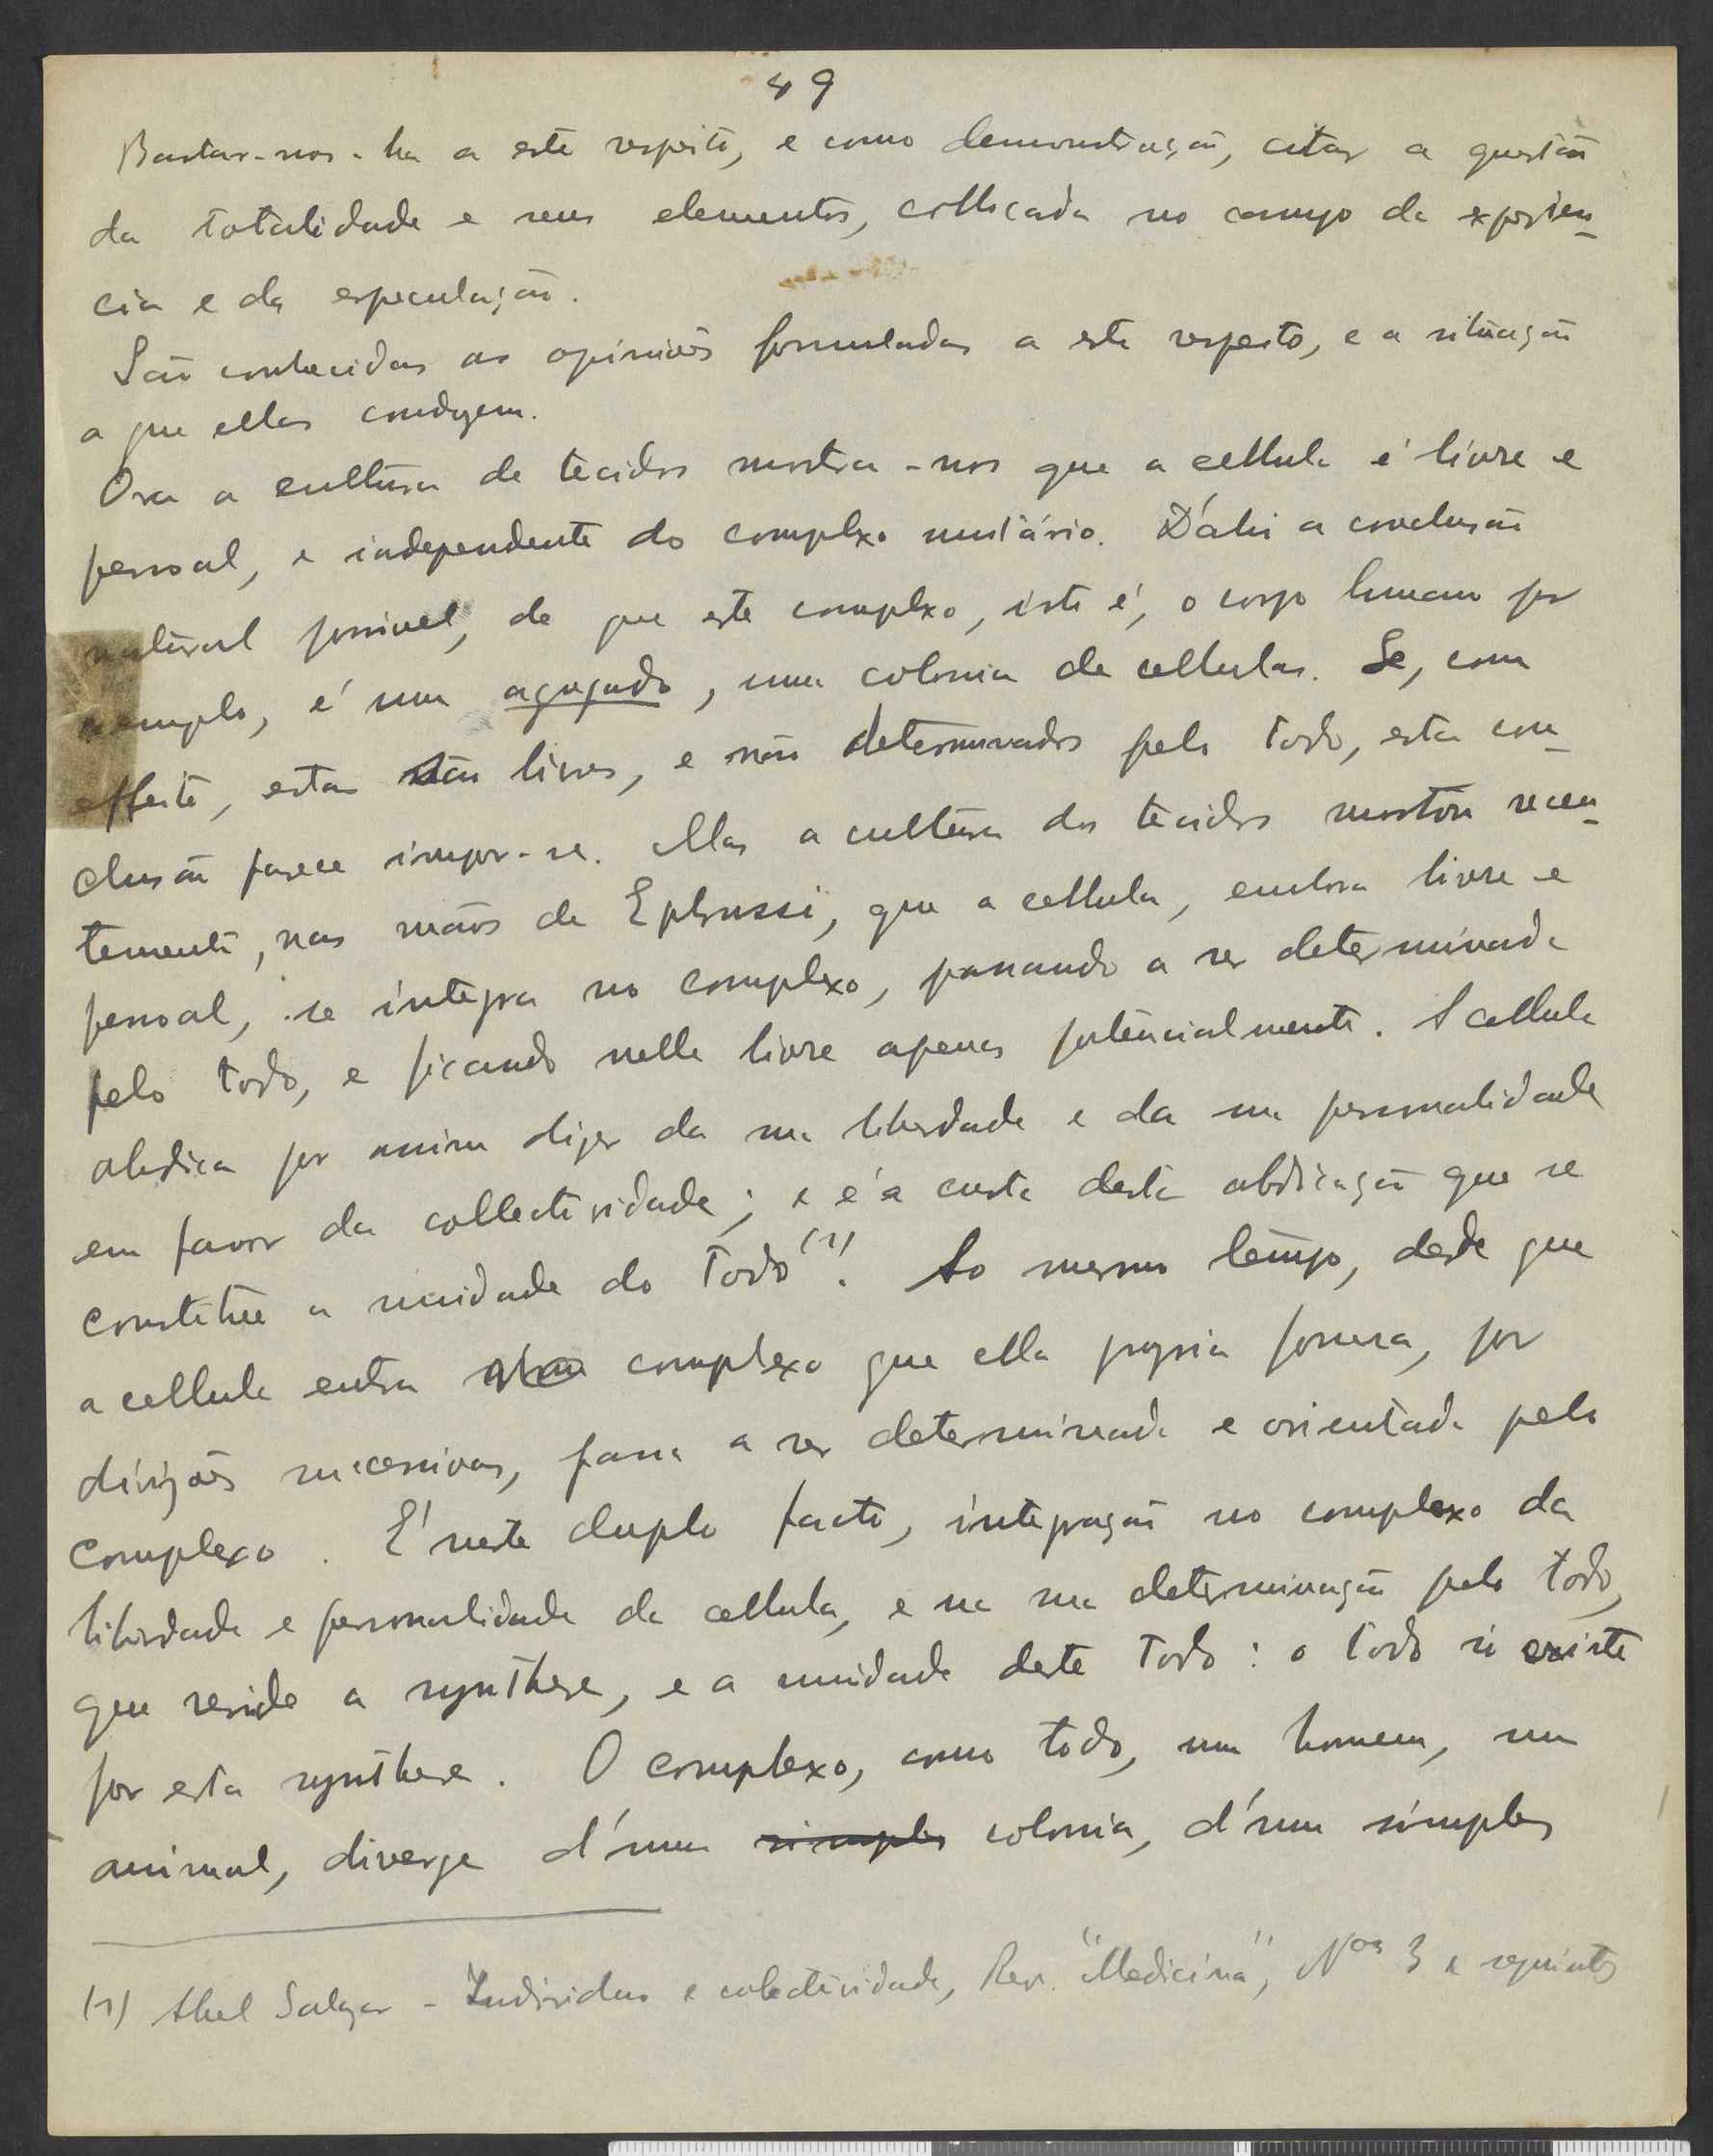 49
Bastar-nos-ha a este respeito, e como demonstração, citar a questão
da totalidade e seus elementos, collocada no campo da experien-
cia e da especulação.
São conhecidas as opiniões formuladas a este respeito, e a situação
a que ellas conduzem.
Ora a cultura de tecidos mostra-nos que a cellula é livre e
pessoal, e independente do complexo unitário. D'ahi a conclusão
natural possivel, de que este complexo, isto é, o corpo humano por
exemplo, é um agregado, uma colonia de cellulas. Se, com
effeito, estas são livres, e não determinadas pelo todo, esta con-
clusão parece impor-se. Mas a cultura dos tecidos mostrou recen-
temente, nas mãos de Ephrussi, que a cellula, embora livre e
pessoal, se integra no complexo, passando a ser determinada
pelo todo, e ficando nelle livre apenas potencialmente. A cellula
abdica por assim dizer da sua liberdade e da sua personalidade
em favor da collectividade; e é à custa desta abdicação que se
constitue a unidade do Todo (1). Ao mesmo tempo, desde que
a cellula entra complexo que ella propria forma, por
divizões sucessivas, passa a ser determinada e orientada pelo
complexo. É neste duplo facto, integração no complexo da
liberdade e personalidade da cellula, e na sua determinação pelo todo,
que reside a synthese, e a unidade deste Todo: o todo só existe
por esta synthese. O complexo, como todo, um homem, um
animal, diverge d'uma simples colonia, d'um simples
(1) Abel Salazar - Individuo e colectividade, Rev. "Medicina", Nos 3 e seguintes